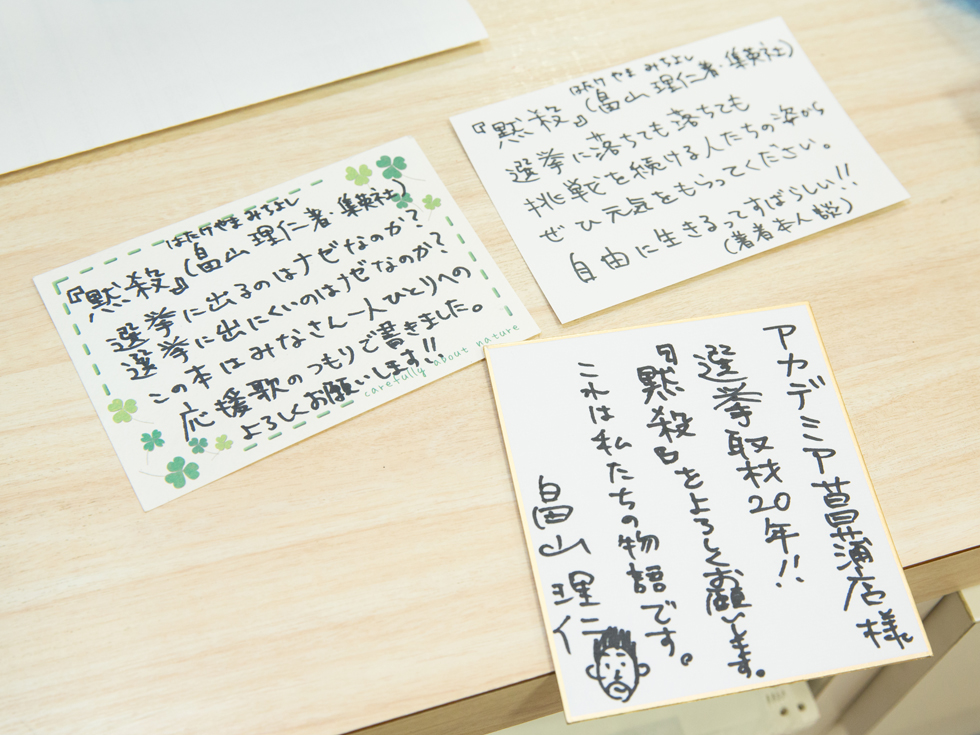 はたけやま みちよし
『黙殺』(畠山理仁著・集英社)
選挙に出るのはナゼなのか?
選挙に出にくいのはナゼなのか?
この本はみなさん一人ひとりへの
応援歌のつもりで書きました。
よろしくお願いします!!
carefully about nature
はたけやま みちよし
『黙殺』(畠山理仁著・集英社)
選挙に落ちても落ちても
挑戦を続ける人たちの姿から
ぜひ元気をもらってください。
自由に生きるってすばらしい!!
(著者本人談)
アカデミア菖蒲店様
選挙取材20年!!
『黙殺』をよろしくお願いします。
これは私たちの物語です。
畠山理仁